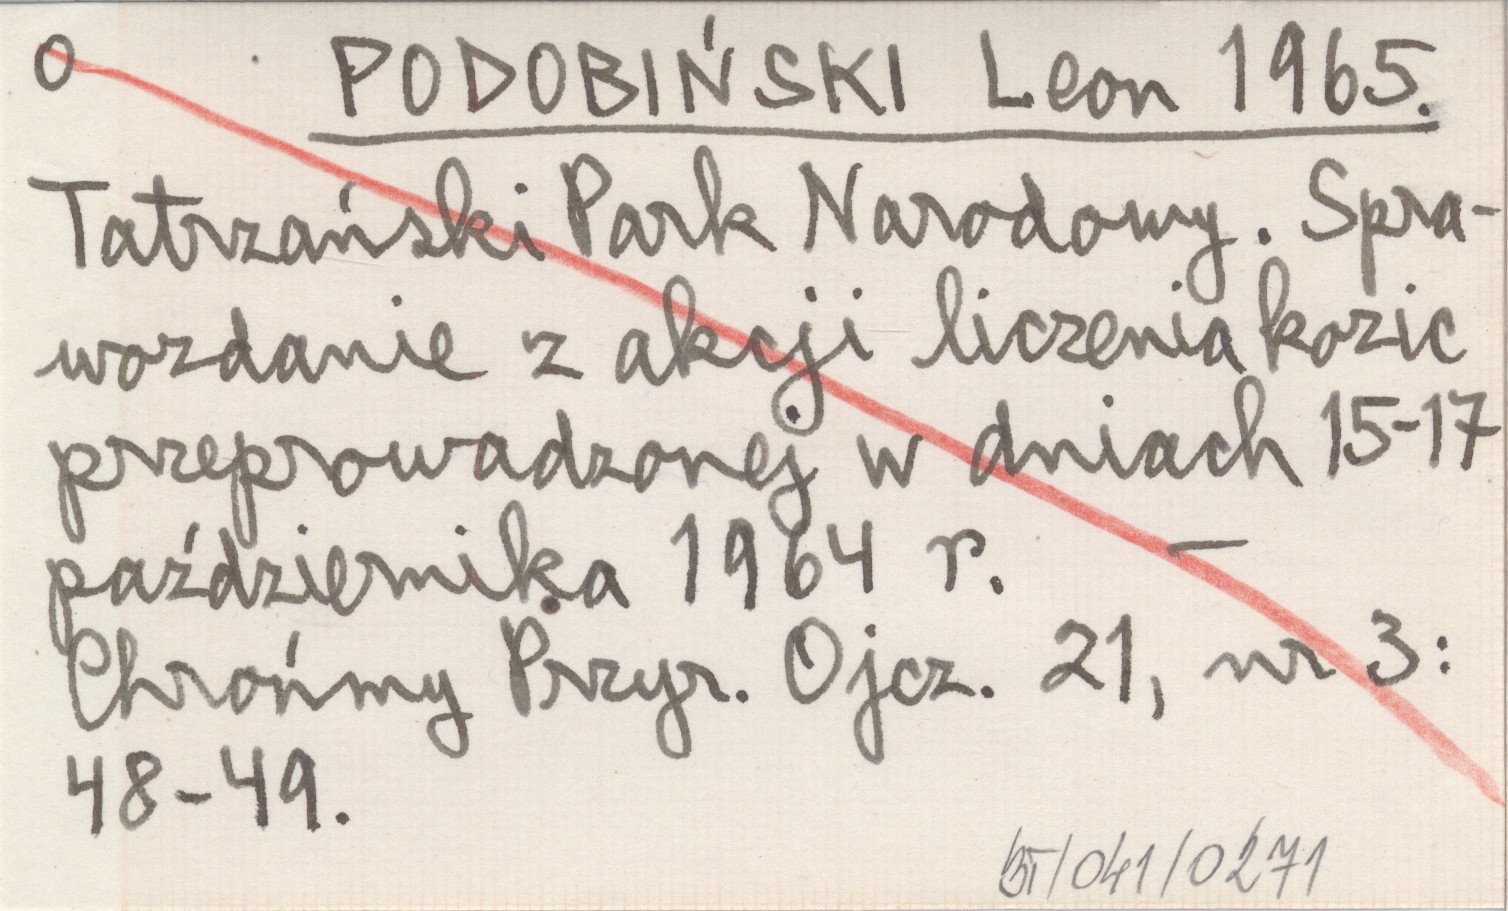 O PODOBIŃSKI Leon 1965.
Tatrzański Park Narodowy. Spra-
wozdanie z akcji liczenia kozic
przeprowadzonej w dniach 15-17
października 1964 r. –
Chrońmy Przyr. Ojcz. 21, nr 3:
48-49.
/041/0271